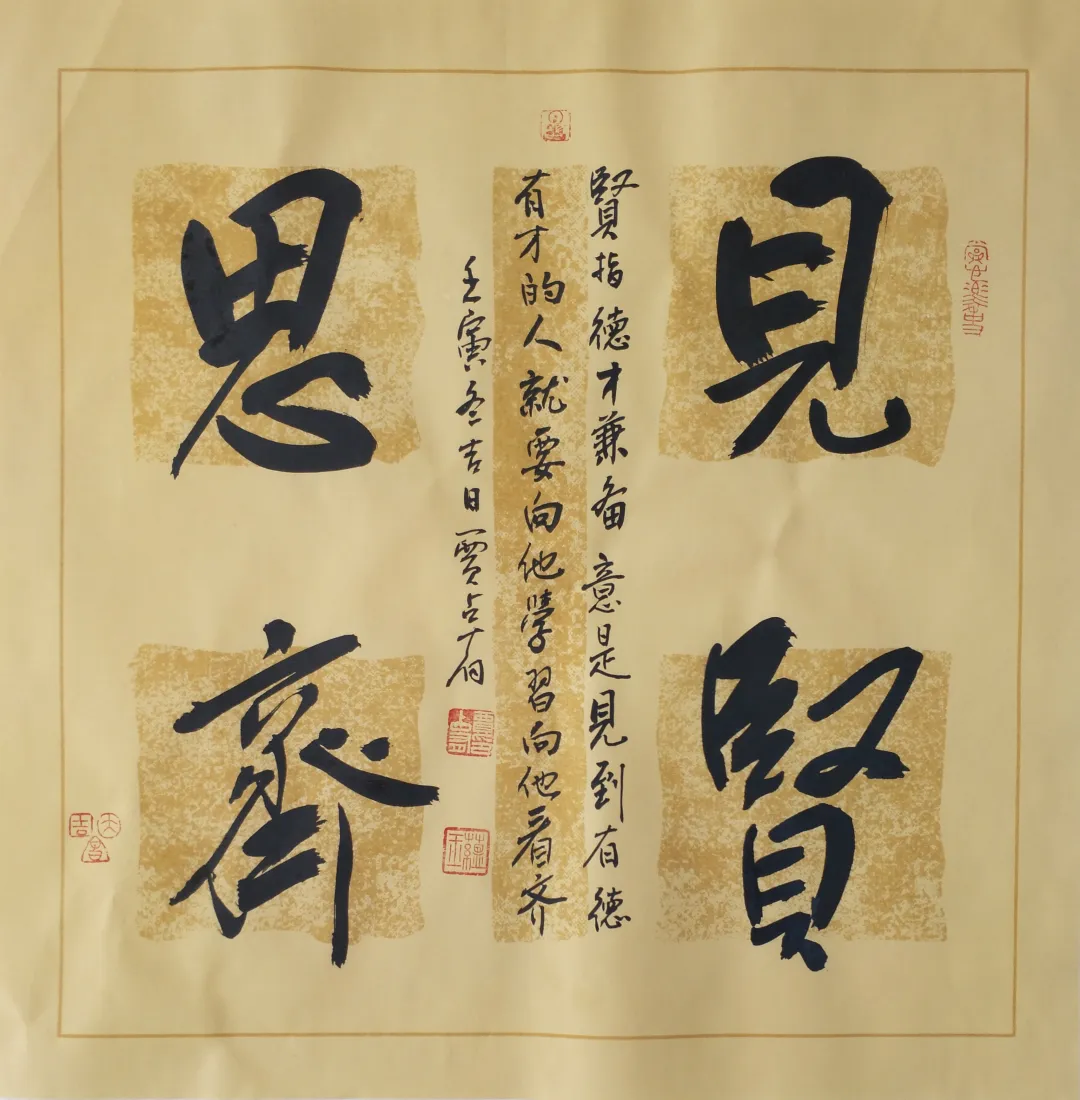 見賢
思齊
賢指德才兼备意是見到有德
有才的人就要向他學習向他看齐
壬寅冬吉日賈占